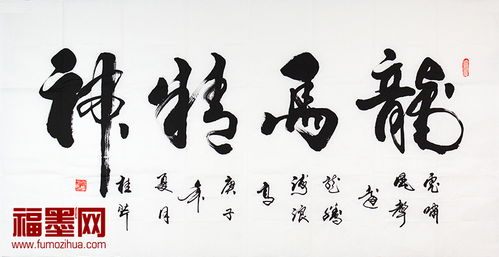 龍馬精神
虎嘯
風聲
遠
龍騰
海浪
高
庚子
年
夏月
桂
福墨网
www.fumozihua.com